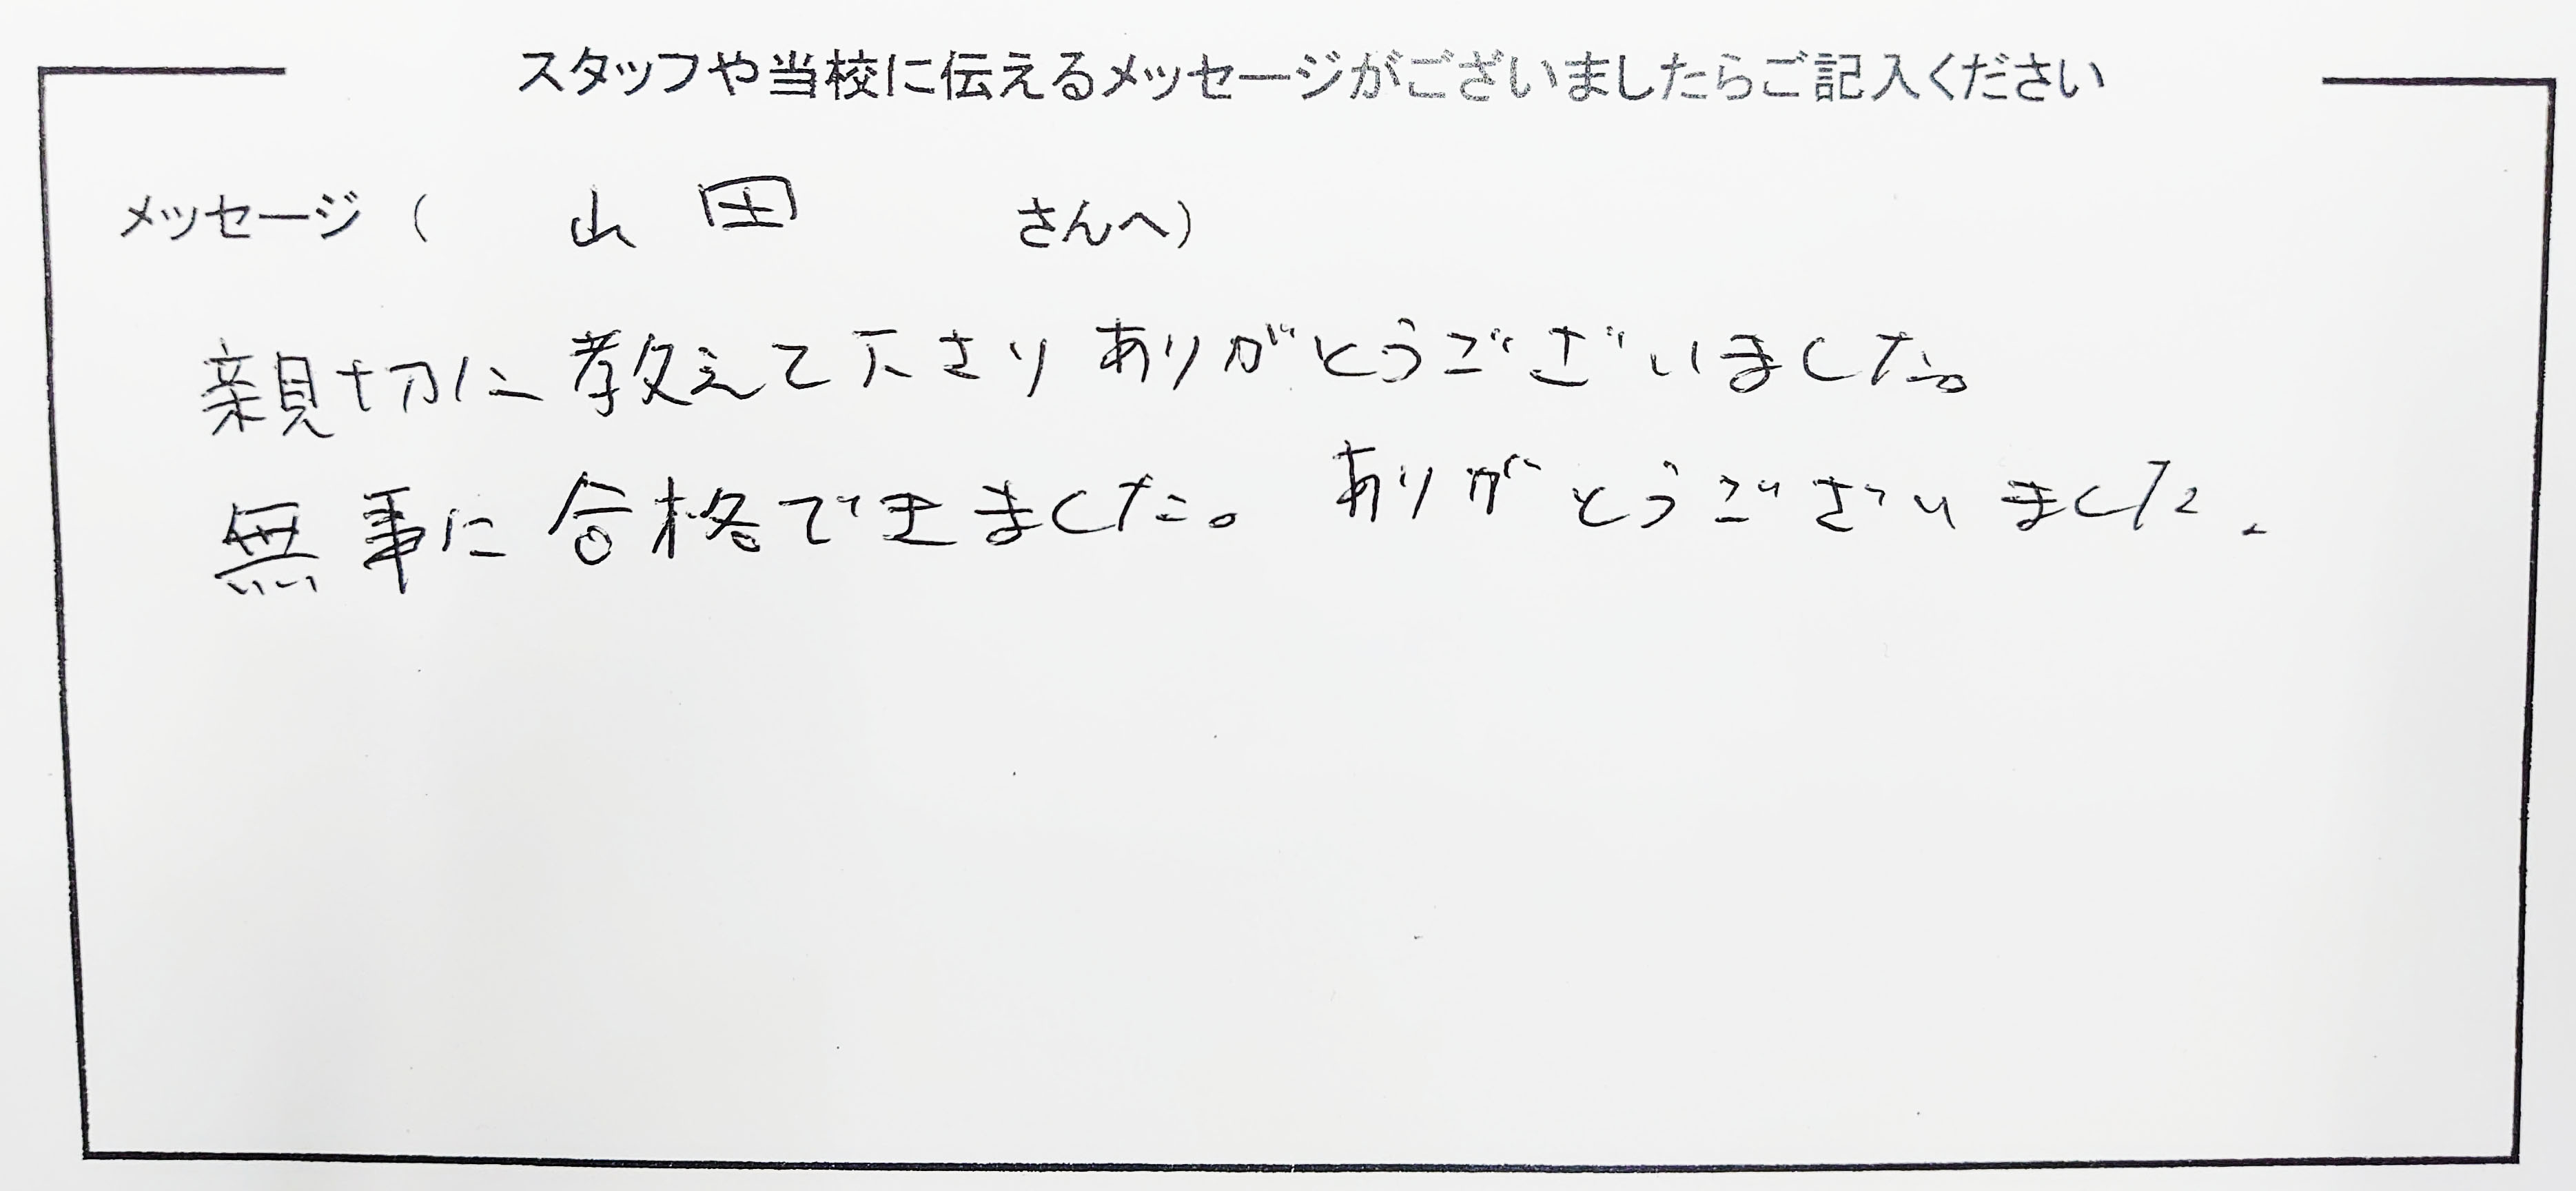 スタッフや当校に伝えるメッセージがございましたらご記入ください
メッセージ（ 山田 さんへ）
親切に教えて下さりありがとうございました。
無事に合格できました。ありがとうございました。